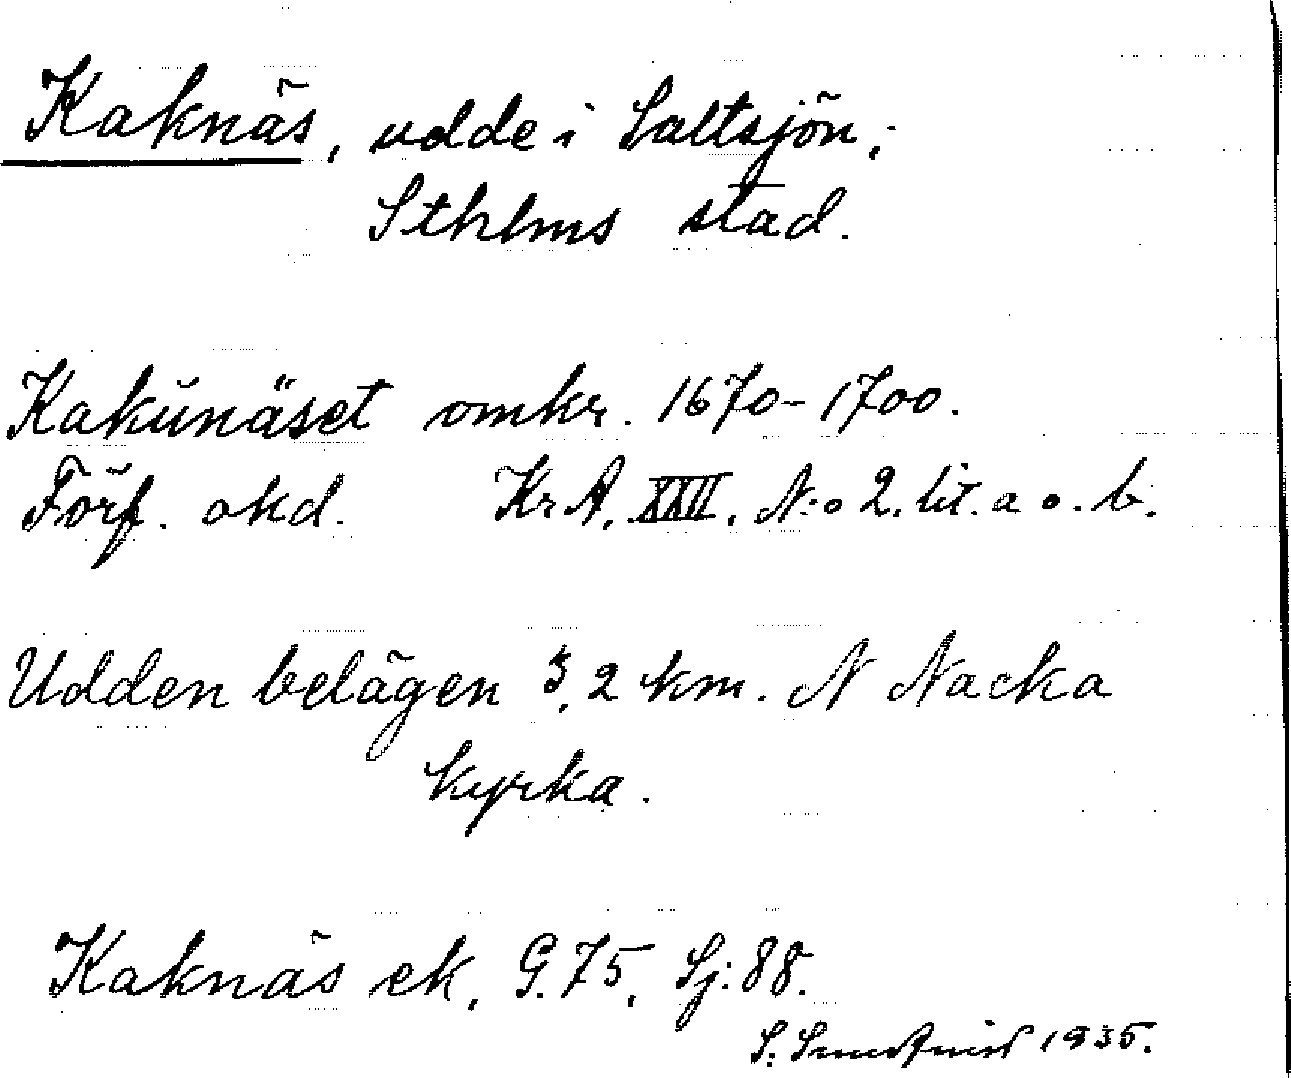 Kaknäs, udde i Saltsjön,
Sthlms stad.
Kakünäset omkr. 1670-1700.
Förf. okd. Kr A. XXII. N:o 2. lit. a o. b.
Udden belägen 3,2 km. N Nacka
kyrka.
Kaknäs ek, G. 75, Sj: 88.
S. 1935.